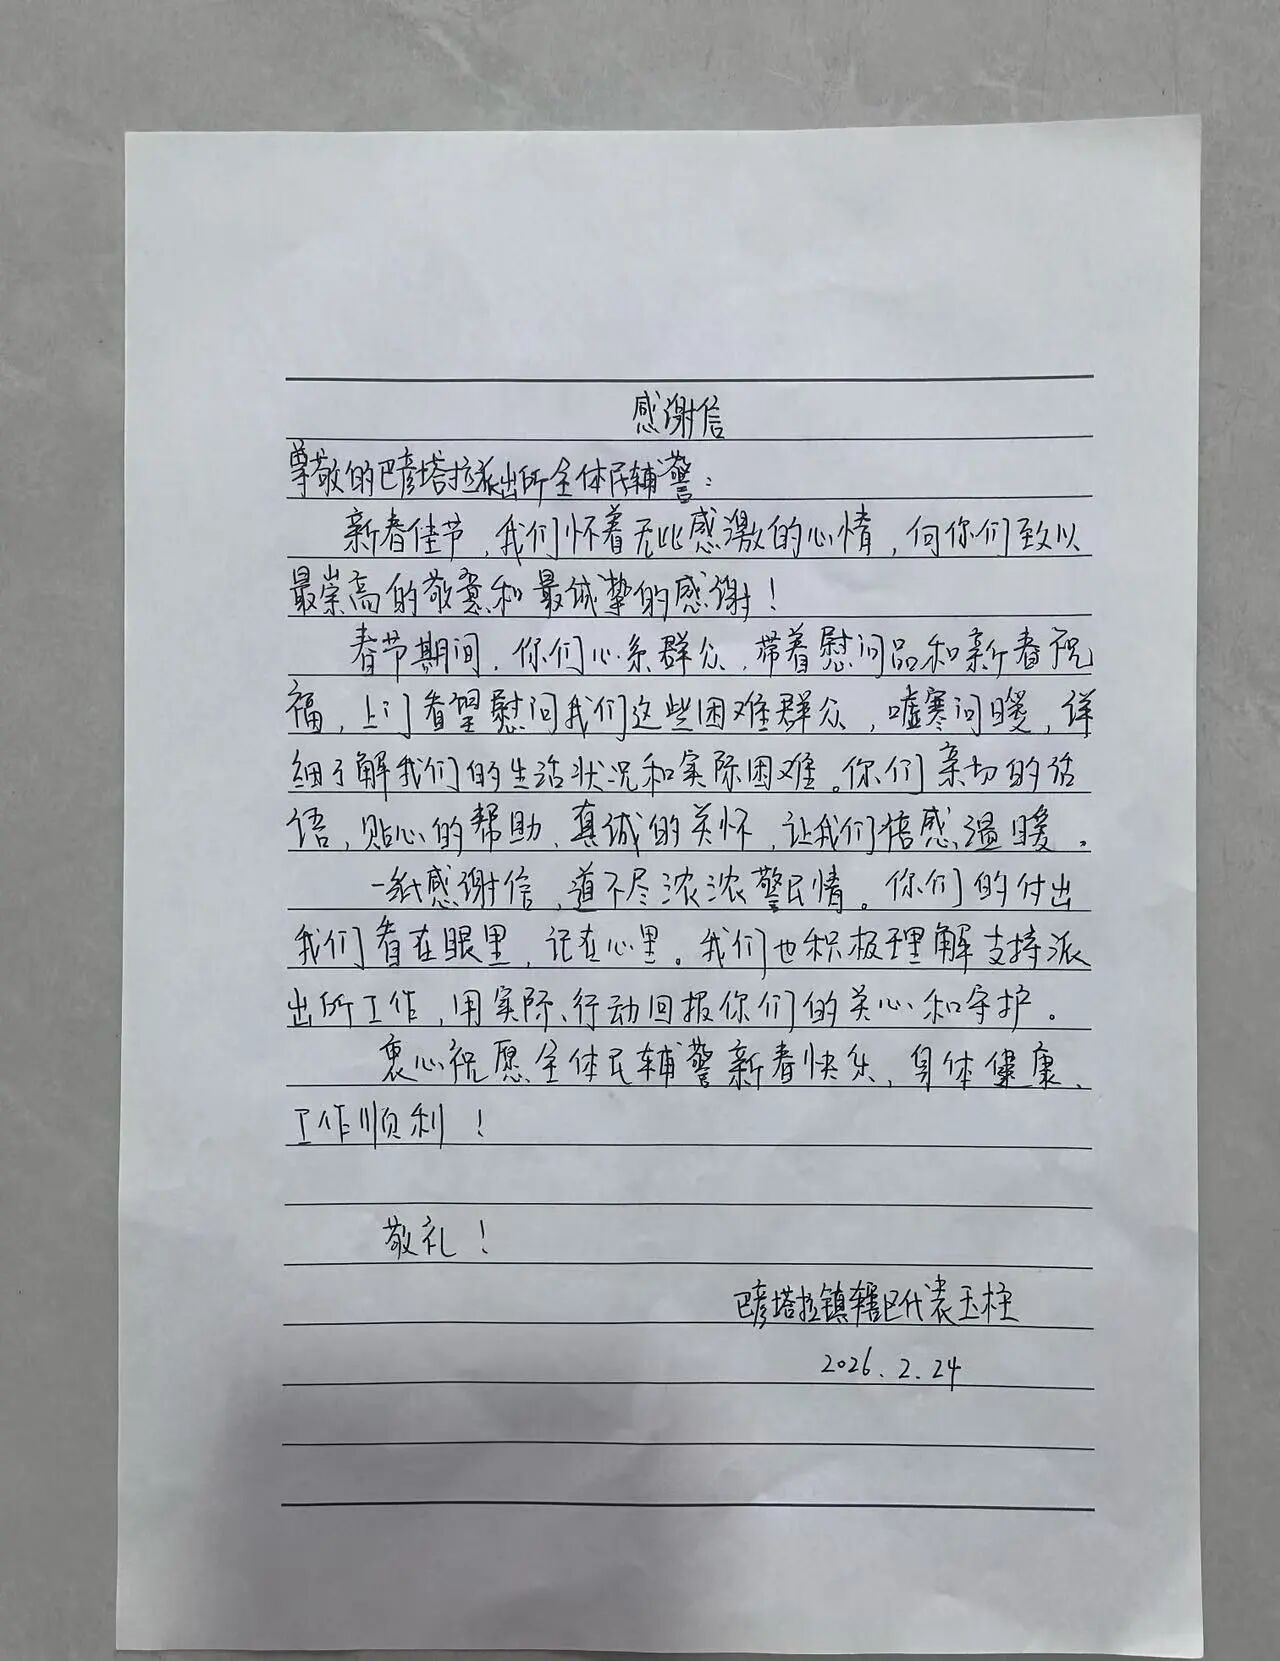 感谢信
尊敬的巴彦塔拉派出所全体民辅警：
新春佳节，我们怀着无比感激的心情，向你们致以
最崇高的敬意和最诚挚的感谢！
春节期间，你们心系群众，带着慰问品和新春祝
福，上门看望慰问我们这些困难群众，嘘寒问暖，详
细了解我们的生活状况和实际困难。你们亲切的话
语，贴心的帮助，真诚的关怀，让我们倍感温暖。
一纸感谢信，道不尽浓浓警民情。你们的付出
我们看在眼里，记在心里。我们也积极理解支持派
出所工作，用实际行动回报你们的关心和守护。
衷心祝愿全体民辅警新春快乐，身体健康、
工作顺利！
敬礼！
巴彦塔拉镇辖区代表玉柱
2026.2.24